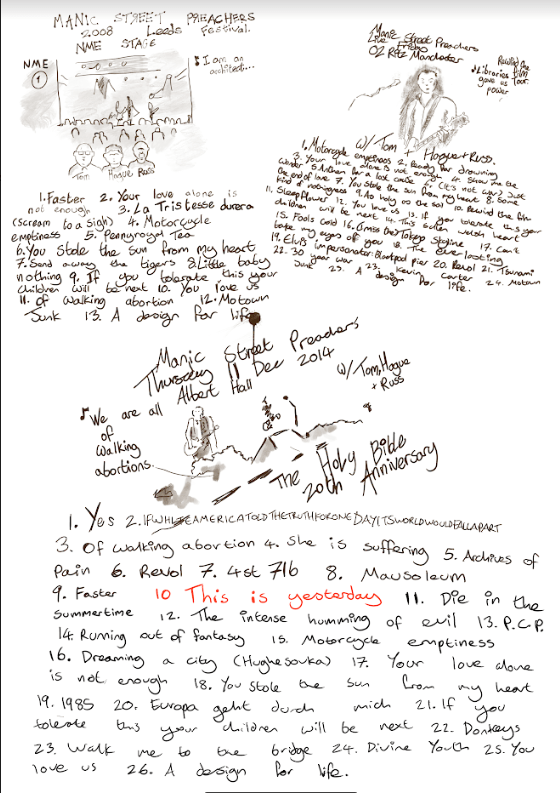 MANIC STREET PREACHERS
2008 Leeds Festival.
NME STAGE
NME
1
♪ I am an
architect...
Tom Hague Russ
1. Faster 2. Your love alone is
not enough 3. La Tristesse durera
(Scream to a Sigh) 4. Motorcycle
emptiness 5. Pennyroyal Tea
6. You Stole the sun from my heart
7. Send away the tigers 8. Little baby
nothing 9. If you tolerate this your
children will be next 10. You love us
11. of walking abortion 12. Motown
Junk 13. A design for life
Manic Street Preachers
Live Friday
O2 Ritz Manchester
Rewind the film tour
♪ Libraries
gave us
power
w/ Tom Hague + Russ.
1. Motorcycle emptiness 2. Ready for drowning
3. Your love alone is not enough 4. Show me the
wonder 5. (It's not war) Just
the end of love 7. You Stole the sun from my heart 8. Some
kind of nothingness 9. As holy as the soil 10. Rewind the film
11. Sleepflower 12. You love us 13. If you tolerate this your
children will be next 14. This sullen welsh heart
15. Fools Gold 16. Tokyo Skyline 17. Can't
take my eyes off you 18. The everlasting
19. Elvis impersonator Blackpool Pier 20. Revol 21. Tsunami
22. 30 year war 23. Kevin Carter 24. Motown
Junk 25. A design for life.
Manic Street Preachers
Thursday 11 Dec 2014
Albert Hall
w/ Tom, Hague
+ Russ
♪ We are all
of
walking
abortions.
The Holy Bible
20th Anniversary
1. Yes 2. IFWHITEAMERICATOLDTHETRUTHFORONEDAYITSWORLDWOULDFALLAPART
3. Of walking abortion 4. She is suffering 5. Archives of
Pain 6. Revol 7. 4st 7lb 8. Mausoleum
9. Faster 10 This is yesterday 11. Die in the
summertime 12. The intense humming of evil 13. P.C.P.
14. Running out of fantasy 15. Motorcycle emptiness
16. Dreaming a city (Hughesovka) 17. Your love alone
is not enough 18. You Stole the Sun from my heart
19. 1985 20. Europa geht durch mich 21. If you
tolerate this your children will be next 22. Donkeys
23. Walk me to the bridge 24. Divine Youth 25. You
love us 26. A design for life.